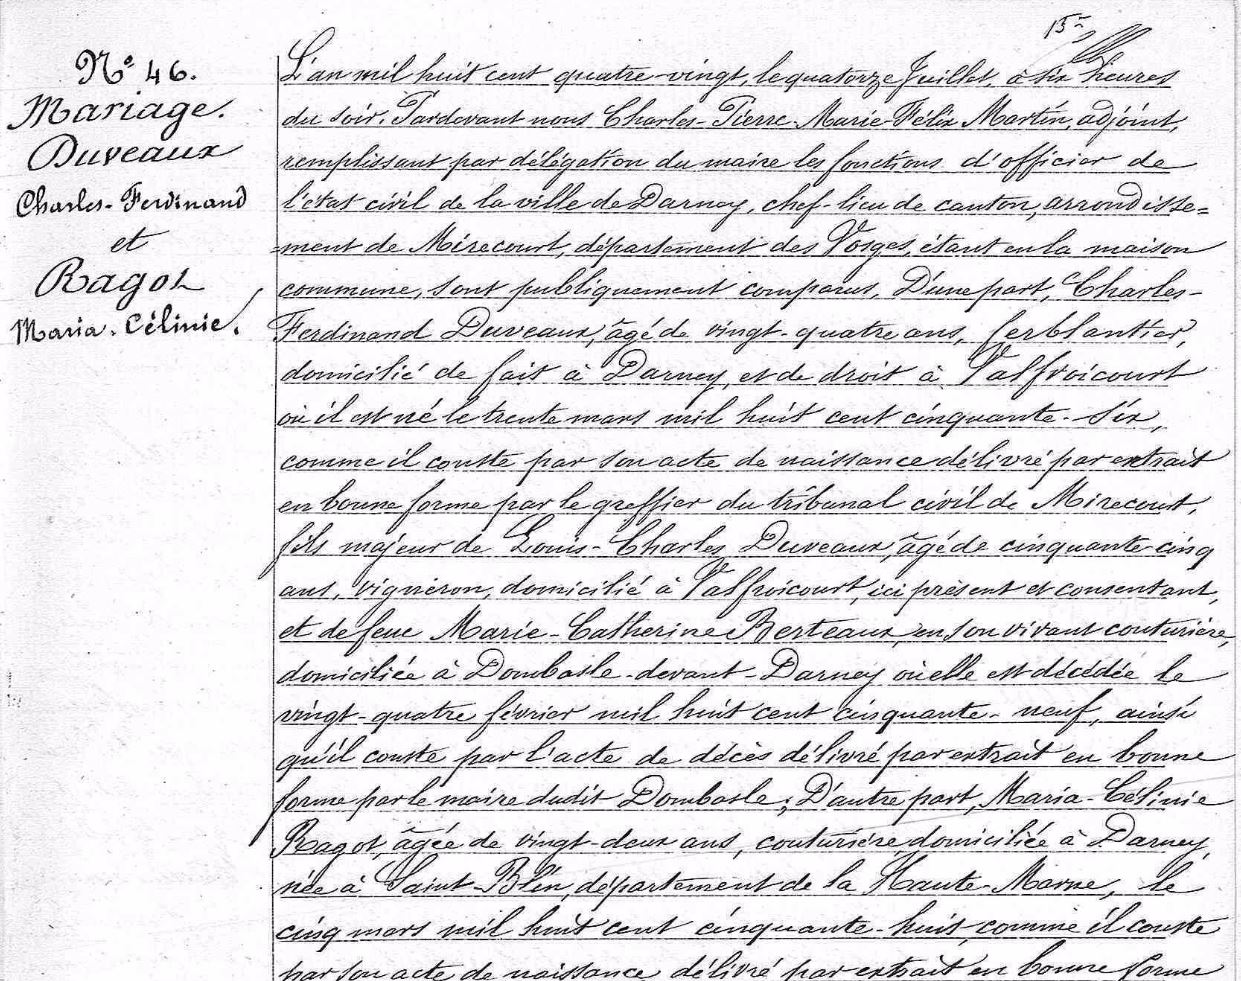 N° 46.
Mariage.
Duveaux
Charles-Ferdinand
et
Ragot
Maria-Célinie.
L'an mil huit cent quatre-vingt, le quatorze Juillet, à six heures
du soir. Pardevant nous Charles-Pierre-Marie-Félix Martin, adjoint,
remplissant par délégation du maire les fonctions d'officier de
l'état civil de la ville de Darney, chef-lieu de canton, arrondisse=
=ment de Mirecourt, département des Vosges, étant en la maison
commune, sont publiquement comparus, D'une part, Charles-
Ferdinand Duveaux, âgé de vingt-quatre ans, ferblantier,
domicilié de fait à Darney, et de droit à Valfroicourt
où il est né le trente mars mil huit cent cinquante-six,
comme il conste par son acte de naissance délivré par extrait
en bonne forme par le greffier du tribunal civil de Mirecourt,
fils majeur de Louis-Charles Duveaux, âgé de cinquante-cinq
ans, vigneron, domicilié à Valfroicourt, ici présent et consentant,
et de feue Marie-Catherine Berteaux, en son vivant couturière,
domiciliée à Dombasle-devant-Darney où elle est décédée le
vingt-quatre février mil huit cent cinquante-neuf, ainsi
qu'il conste par l'acte de décès délivré par extrait en bonne
forme par le maire dudit Dombasle; D'autre part, Maria-Célinie
Ragot, âgée de vingt-deux ans, couturière, domiciliée à Darney,
née à Saint-Blin, département de la Haute-Marne, le
cinq mars mil huit cent cinquante-huit, comme il conste
par son acte de naissance délivré par extrait en bonne forme